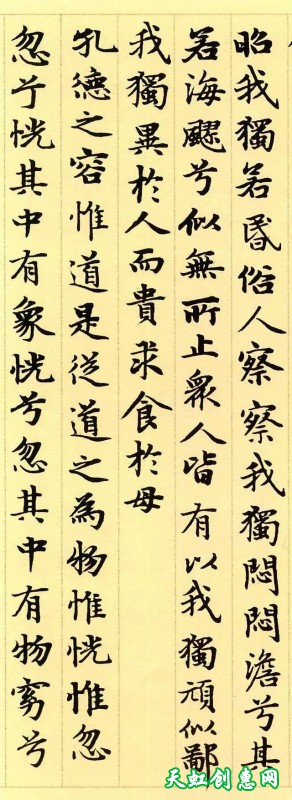 昭我獨若昬俗人察察我獨悶悶澹兮其
若海飂兮似無所止衆人皆有以我獨頑似鄙
我獨異於人而貴求食於母
孔德之容惟道是從道之為物惟恍惟忽
忽兮恍其中有象恍兮忽其中有物窈兮
天虹创惠网